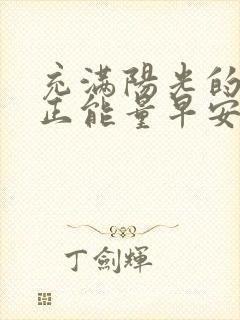 充滿陽光的
正能量早安
丁劍輝